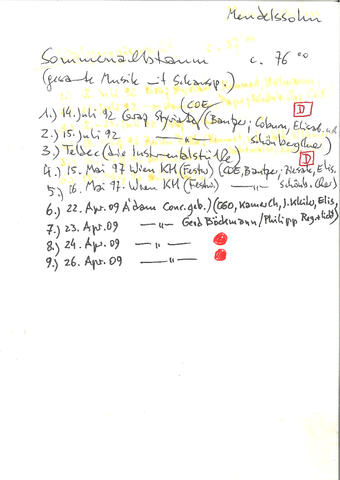 Mendelssohn
Sommernachtstraum c. 76 00
(gesamte Musik mit Schausp.)
(COE,
D
1.) 14. Juli 92 Graz Styriarte (Bantzer, Coburn, Elisab. v.
2.) 15. Juli 92 —"— Schönbergchor)
3.) Teldec (die Instrumentalstücke)
D
4.) 15. Mai 97 Wien KH (Festw) (COE, Bantzer, Ziesak, Elis.
5.) 16. Mai 97. Wien KH (Festw) —"— Schönb. Chor)
6.) 22. Apr. 09 A'dam Conc.geb.) (CGO, Kamerch, J. Kleiter, Elis,
7.) 23. Apr. 09 —"— Gerd Böckmann/Philipp
8.) 24. Apr. 09 —"—
9.) 26. Apr. 09 —"—